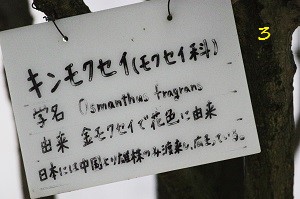 3
キンモクセイ(モクセイ科)
学名 Osmanthus fragrans
由来 金モクセイで花色に由来
日本には中国より雄株のみ渡来し、広まっている。